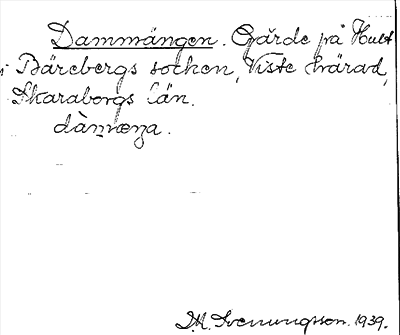 Dammängen. Gärde på Hult
i Bärebergs socken, Viste härad,
Skaraborgs län.
M. Svenungsson. 1939.